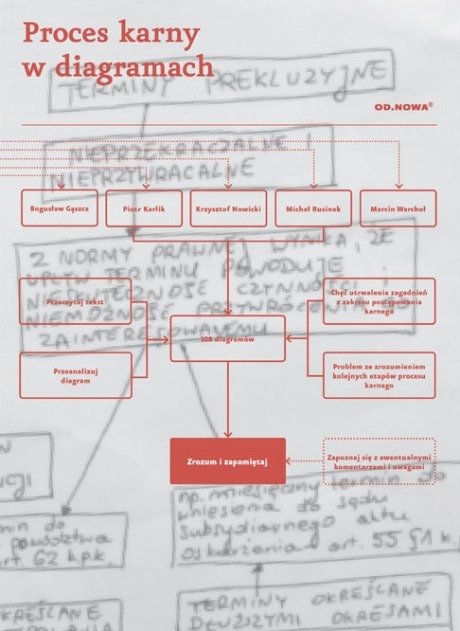 Proces karny
w diagramach
TERMINY PREKLUZYJNE
OD.NOWA®
NIEPRZEKRACZALNE I
NIEPRZYWRACALNE
Bogusław Gąszcz
Piotr Karlik
Krzysztof Nowicki
Michał Rusinek
Marcin Warchoł
Z NORMY PRAWNEJ WYNIKA, ŻE
UPŁYW TERMINU POWODUJE
Przeczytaj tekst
Chęć utrwalenia zagadnień
z zakresu postępowania
karnego
ZAINTERESOWANEMU
100 diagramów
Przeanalizuj
diagram
Problem ze zrozumieniem
kolejnych etapów procesu
karnego
Zrozum i zapamiętaj
Zapoznaj się z ewentualnymi
komentarzami i uwagami
np. miesięczny termin do
wniesienia do sądu
subsydiarnego aktu
oskarżenia art. 55 §1 k.
min do
powództwa
art 62 kpk.
KREŚLANE
TERMINY OKREŚLANE
DŁUŻSZYMI OKRESAMI